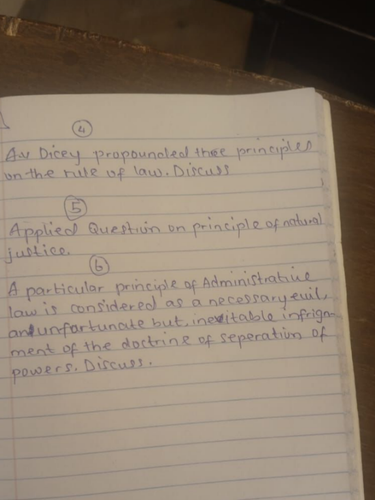 4
A.v Dicey propounded three principles
on the rule of law. Discuss
5
Applied Question on principle of natural
justice.
6
A particular principle of Administrative
law is considered as a necessary evil,
an unfortunate but inevitable infrign-
ment of the doctrine of seperation of
powers. Discuss.